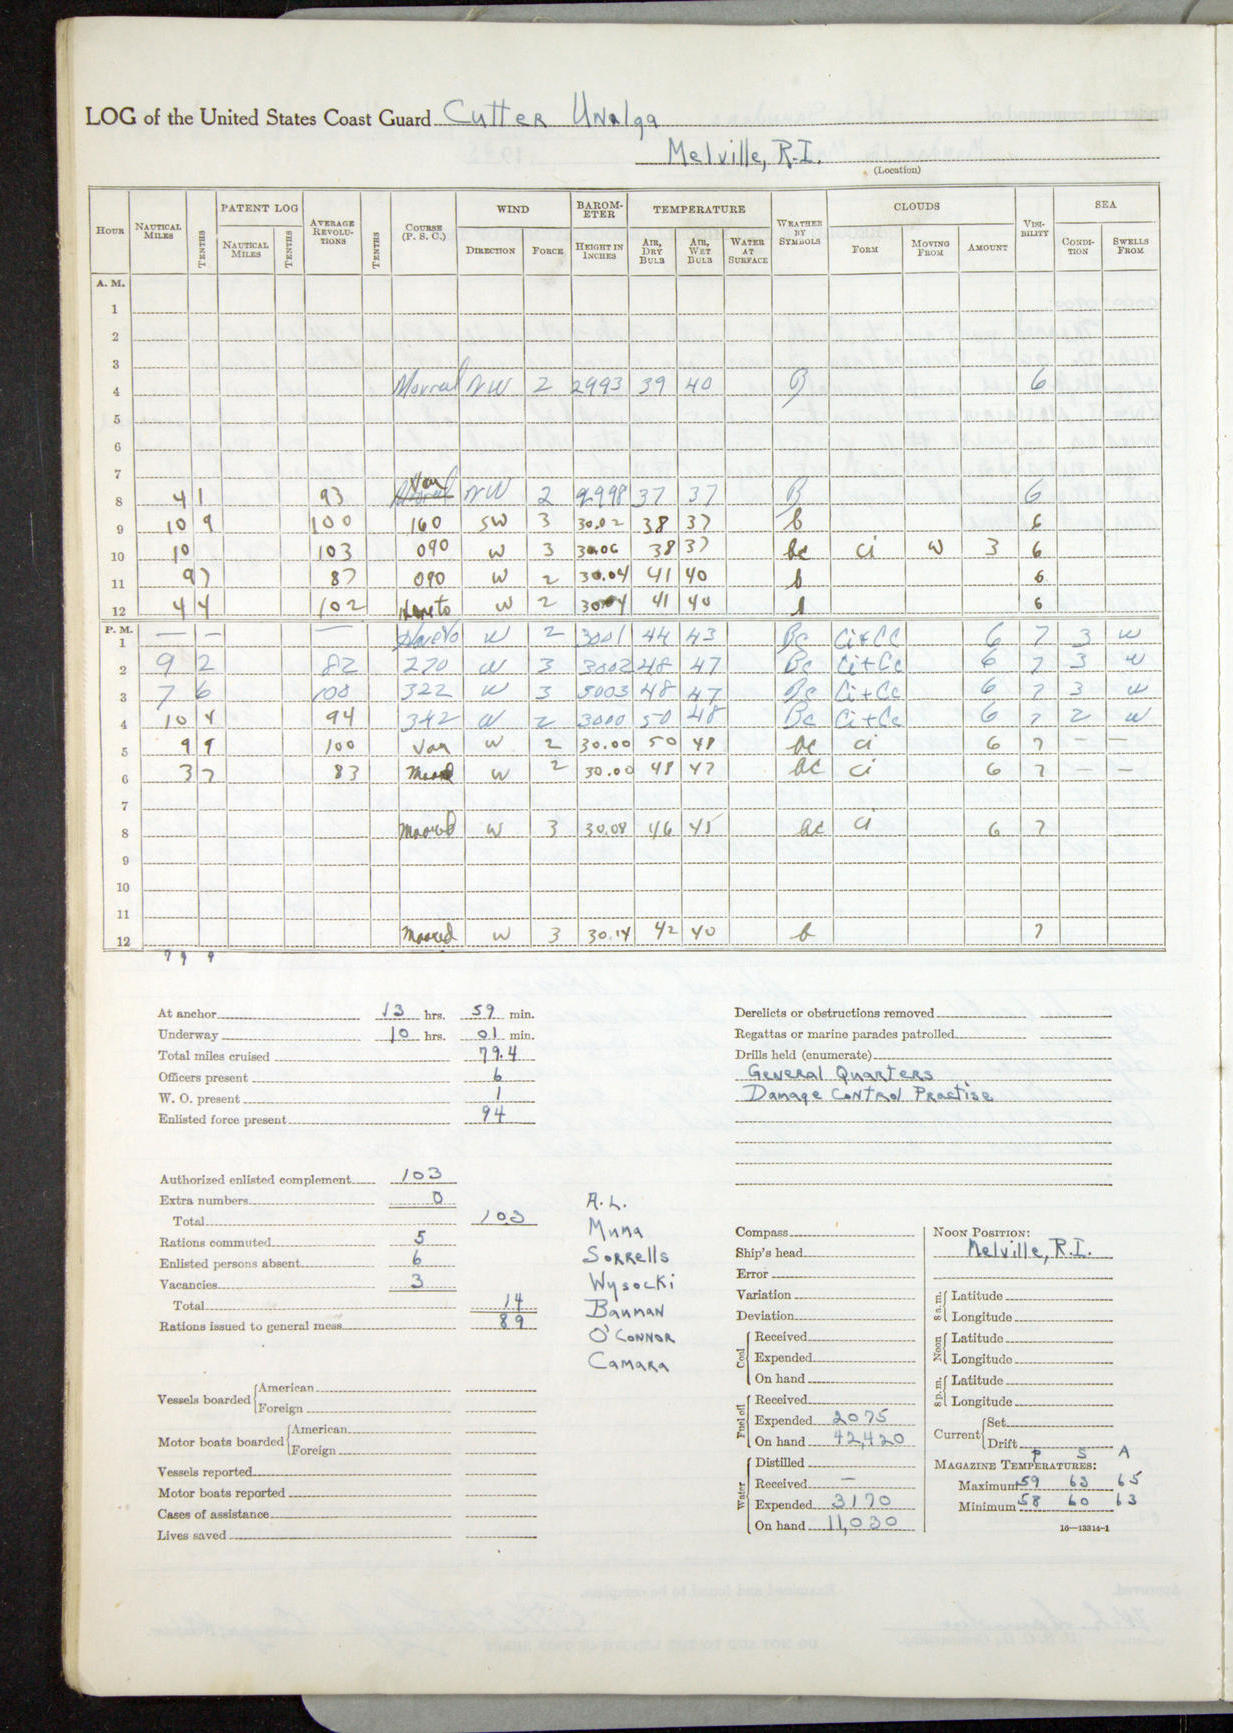 LOG of the United States Coast Guard Cutter Unalga
Melville, R.I.
(Location)
HOUR NAUTICAL MILES TENTHS PATENT LOG NAUTICAL MILES TENTHS AVERAGE REVOLU-TIONS TENTHS COURSE (P. S. C.) WIND DIRECTION FORCE BAROM-ETER HEIGHT IN INCHES TEMPERATURE AIR, DRY BULB AIR, WET BULB WATER AT SURFACE WEATHER BY SYMBOLS CLOUDS FORM MOVING FROM AMOUNT VISI-BILITY SEA CONDI-TION SWELLS FROM
A. M.
1
2
3
4 NW 2 2993 39 40 B 6
5
6
7
8 4 1 93 Var NW 2 2998 37 37 B 6
9 10 9 100 160 SW 3 30.02 38 37 b 6
10 10 103 090 W 3 30.06 38 37 bc Ci W 3 6
11 9 7 87 090 W 2 30.04 41 40 b 6
12 4 4 102 W 2 30.04 41 40 b 6
P. M.
1 — — — W 2 3001 44 43 Bc Ci+Cc 6 7 3 W
2 9 2 82 270 W 3 3002 48 47 Bc Ci+Cc 6 7 3 W
3 7 6 100 322 W 3 3003 48 47 Bc Ci+Cc 6 7 3 W
4 10 4 94 342 W 2 3000 50 48 Bc Ci+Cc 6 7 2 W
5 9 9 100 Var W 2 30.00 50 48 bc Ci 6 7 — —
6 3 7 83 W 2 30.00 48 47 bc Ci 6 7 — —
7
8 Moored W 3 30.08 46 45 bc Ci 6 7
9
10
11
12 Moored W 3 30.14 42 40 b 7
79 9
At anchor 13 hrs. 59 min.
Underway 10 hrs. 01 min.
Total miles cruised 79.4
Officers present 6
W. O. present 1
Enlisted force present 94
Authorized enlisted complement 103
Extra numbers 0
Total 103
Rations commuted 5
Enlisted persons absent 6
Vacancies 3
Total 14
Rations issued to general mess 89
A. L.
Muna
Sorrells
Wysocki
Bauman
O'Connor
Camara
Vessels boarded American
Foreign
Motor boats boarded American
Foreign
Vessels reported
Motor boats reported
Cases of assistance
Lives saved
Derelicts or obstructions removed
Regattas or marine parades patrolled
Drills held (enumerate)
General Quarters
Damage Control Practise
Compass
Ship's head
Error
Variation
Deviation
Coal Received
Expended
On hand
Fuel oil Received
Expended 2075
On hand 42,420
Water Distilled
Received —
Expended 3170
On hand 11,030
NOON POSITION:
Melville, R.I.
8 a. m. Latitude
Longitude
Noon Latitude
Longitude
8 p. m. Latitude
Longitude
Current Set
Drift
P S A
MAGAZINE TEMPERATURES:
Maximum 59 63 65
Minimum 58 60 63
16—13314-1